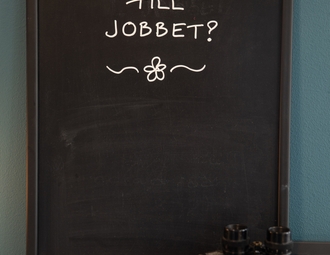 TILL
JOBBET?